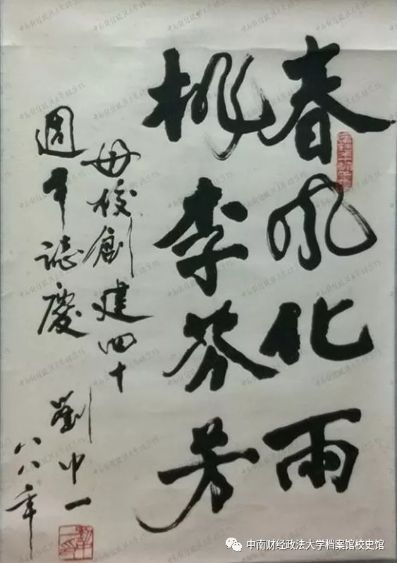 春风化雨
桃李芬芳
母校創建四十
週年誌慶
劉中一
八八年
中南财经政法大学档案馆校史馆